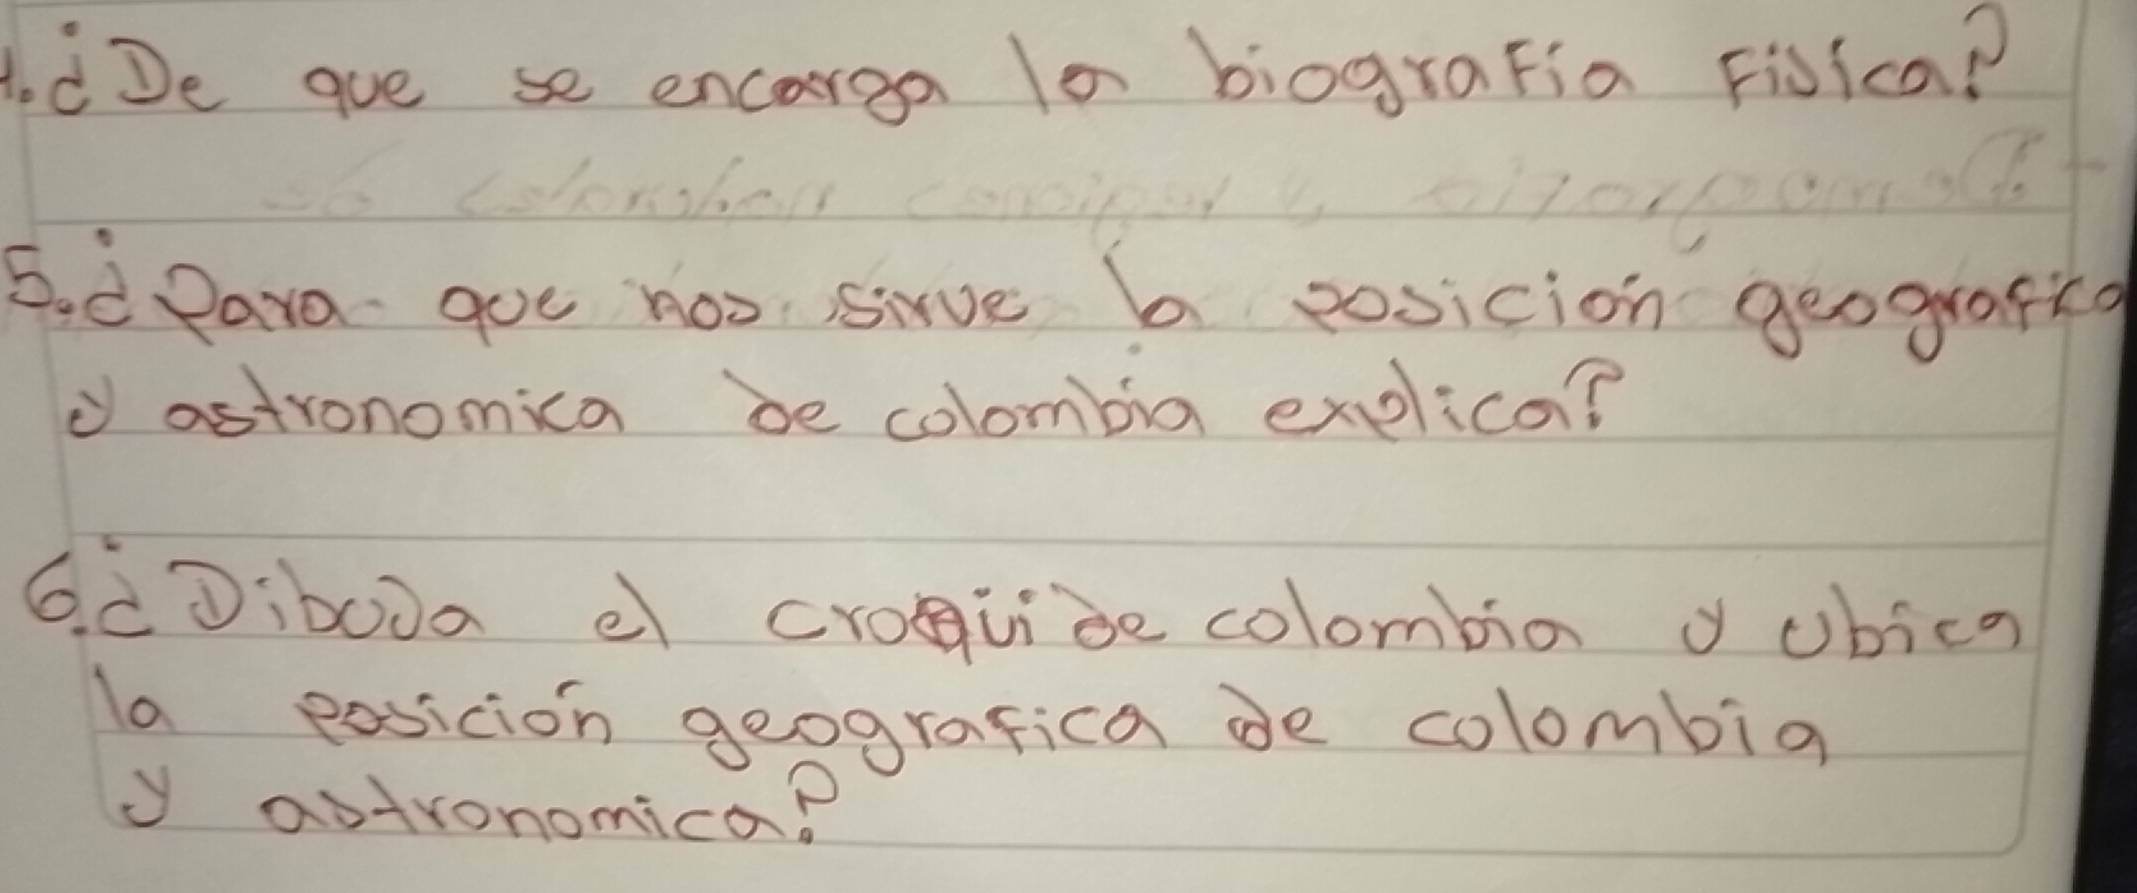 1.¿De que se encarga la biografia Fisica?
5.¿Para que nos sirve la posición geografica
y astronomica de colombia explica?
6.¿Dibuja el croqui de colombia y ubica
la posición geografica de colombia
y astronomica?